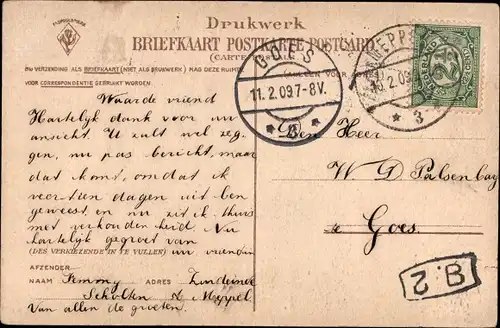 Drukwerk
BRIEFKAART POSTKARTE POSTCARD
(CARTE
BIJ VERZENDING ALS BRIEFKAART (NIET ALS DRUKWERK) MAG DEZE RUIMTE
VOOR CORRESPONDENTIE GEBRUIKT WORDEN.
GOES
11.2.09.7-8V.
MEPPEL
10.2.09
3
NEDERLAND
2½
Waarde vriend
Hartelyk dank voor uw
ansicht. U zult wel zeg-
gen, nu pas bericht, maar
dat komt, om dat ik
veertien dagen uit ben
geweest en nu zit ik thuis
met verkoudenheid. Nu
hartelyk gegroet van
(DES VERKIEZENDE IN TE VULLEN) uw vriendin
AFZENDER
NAAM Jemmy ADRES Zuideinde
Scholten Meppel
Van allen de groeten.
Den Heer
W D Palsenbag
te Goes.
B.2